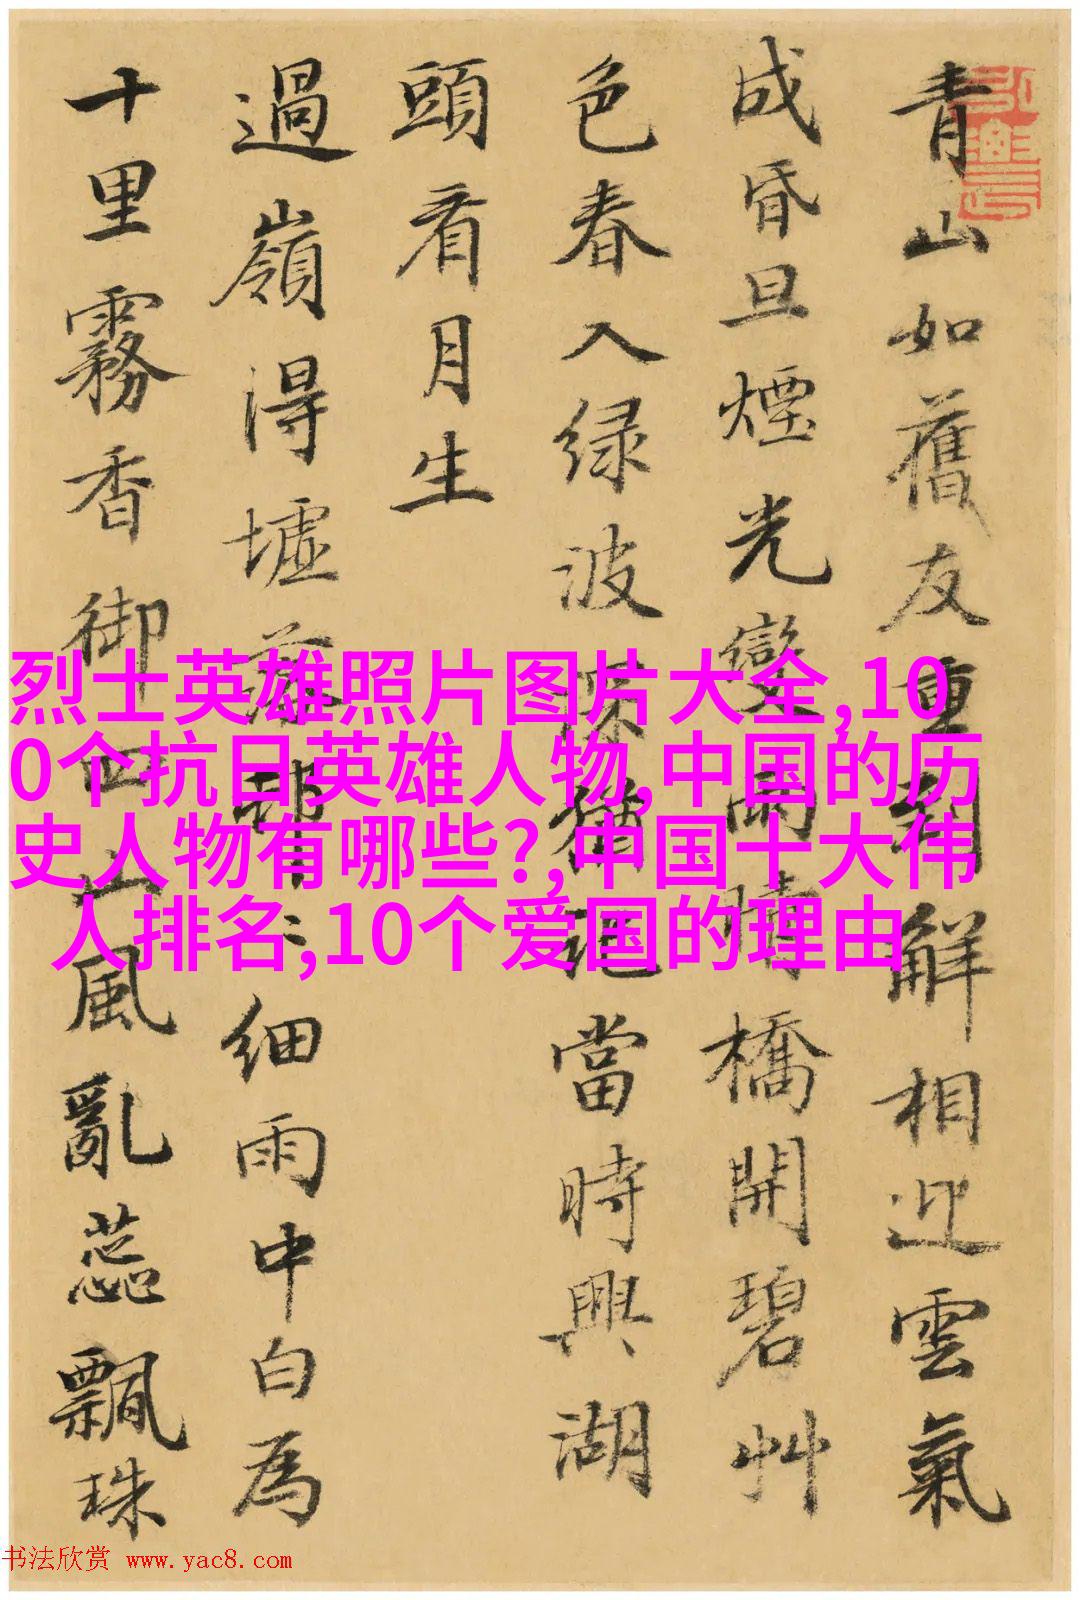 青山如舊友重到解相迎雲氣
成昏旦煙光變雨晴橋開碧艸
色春入绿波深猶當時興湖
頭看月生
過嶺得墟落細雨中白為
十里霧香御四山風亂蕊飄珠
烈士英雄照片图片大全,10
0个抗日英雄人物,中国的历
史人物有哪些?,中国十大伟
人排名,10个爱国的理由
书法欣赏 www.yac8.com